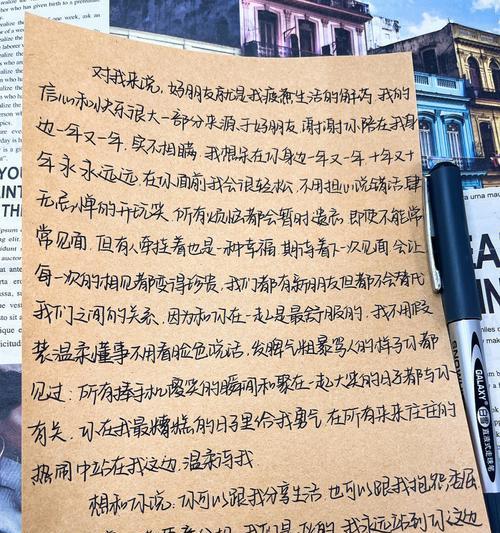 对我来说，好朋友就是我疲惫生活的解药，我的
信心和快乐很大一部分来源于好朋友，谢谢你陪在我身
边一年又一年，实不相瞒，我想呆在你身边一年又一年，十年又十
年，永永远远，在你面前我会很轻松，不用担心说错话，肆
无忌惮的开玩笑，所有烦恼都会暂时遗忘，即使不能常
常见面，但有人牵挂着也是一种幸福，期待着下一次见面会让
每一次的相见都变得珍贵，我们都有新朋友但都不会替代
我们之间的关系，因为和你在一起是最舒服的，我不用假
装温柔懂事不用看脸色说话，发脾气粗暴骂人的样子你都
见过；所有捧手机傻笑的瞬间和聚在一起大笑的日子都与你
有关，你在我最糟糕的日子里给我勇气，在所有来来往往的
热闹中站在我这边，温柔待我
想和你说：你可以跟我分享生活，也可以跟我抱怨委屈
我永远站到你这边
realize the
one of
week, ask
who has given birth to a premature
GALAXY
直液式走珠笔